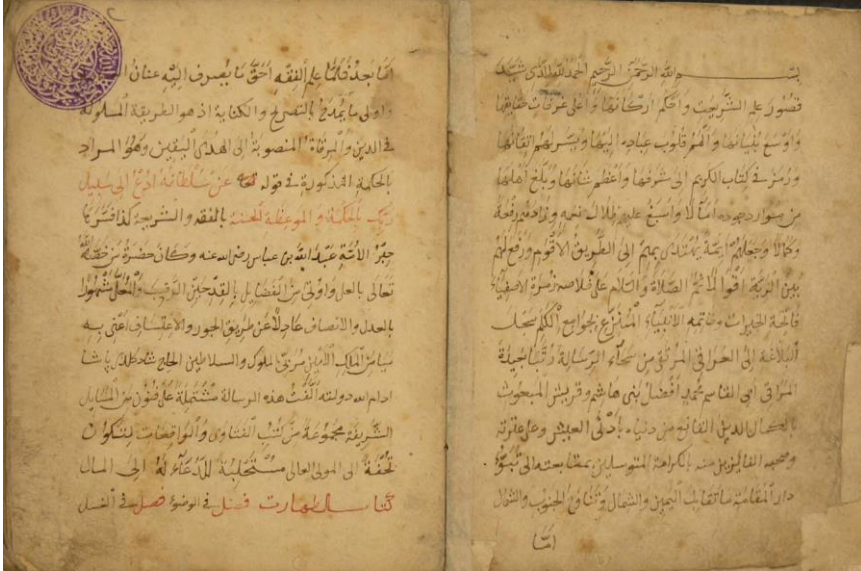 بسم الله الرحمن الرحيم الحمد لله الذى شيد
قصور علم الشريعت واحكم اركانها واعلى غرفات حقايقها
واوسع بنيانها والهم قلوب عباده اليها ويسر لهم اتقانها
ورمز فى كتاب الكريم الى شرفها واعظم شانها وبلغ اهلها
من سوار آمالا واسبغ عليهم ظلال نعمه وزادهم رفعة
وكمالا وجعلهم ايمة يهتدى بهم الى الطريق الاقوم ورفع لهم
بين البرية اقوالا ثم الصلاة والسلام على خلاصه زمرة الاصفياء
فاتحة الخيرات وخاتمه الانبياء المنتزع بجوامع الكلم
البلاغة الى المرتقى من سماء الرسالة رتبا بعيدة
المراقى ابى القاسم محمد افضل بنى هاشم وقريش المبعوث
بالكمال الدين القانع من دنياه بادنى العيش وعلى عترته
وصحبه الفايزين منه بالكرامة المتوسلين بمتابعته الى تبوء
دار المقامة ما تقابلت اليمين والشمال وتناوح الجنوب والشمال
اما
اما بعد فلما علم الفقه احق ما يصرف اليه عنان
اولى ما يمدح بالتصريح والكناية اذ هو الطريقة المسلوكة
فى الدين والمرقاة المنصوبة الى الهدى اليقين وهو المراد
بالحكمة المذكورة فى قوله عن سلطانه ادع الى سبيل
ربك بالحكمة والموعظة الحسنة بالفقه والشريعة كذا فسرها
حبر الامة عبد الله بن عباس رضى الله عنه وكان حضرة من خصه الله
تعالى بالعدل واوتى من الفضايل بالقدح
بالعدل والانصاف عادلا عن طريق الجور والاعتساف اعنى به
الملك الامين مربى الملوك والسلاطين الحاج باشا
ادام الله دولته الفت هذه الرسالة مشتملة على فنون من المسايل
الشريفة مجموعة من كتب الفتاوى والواقعات لتكون
تحفة الى المولى العالى مستجلبة للدعاء له الى المال
كتاب الطهارت فصل فى الوضوء فصل فى الغسل